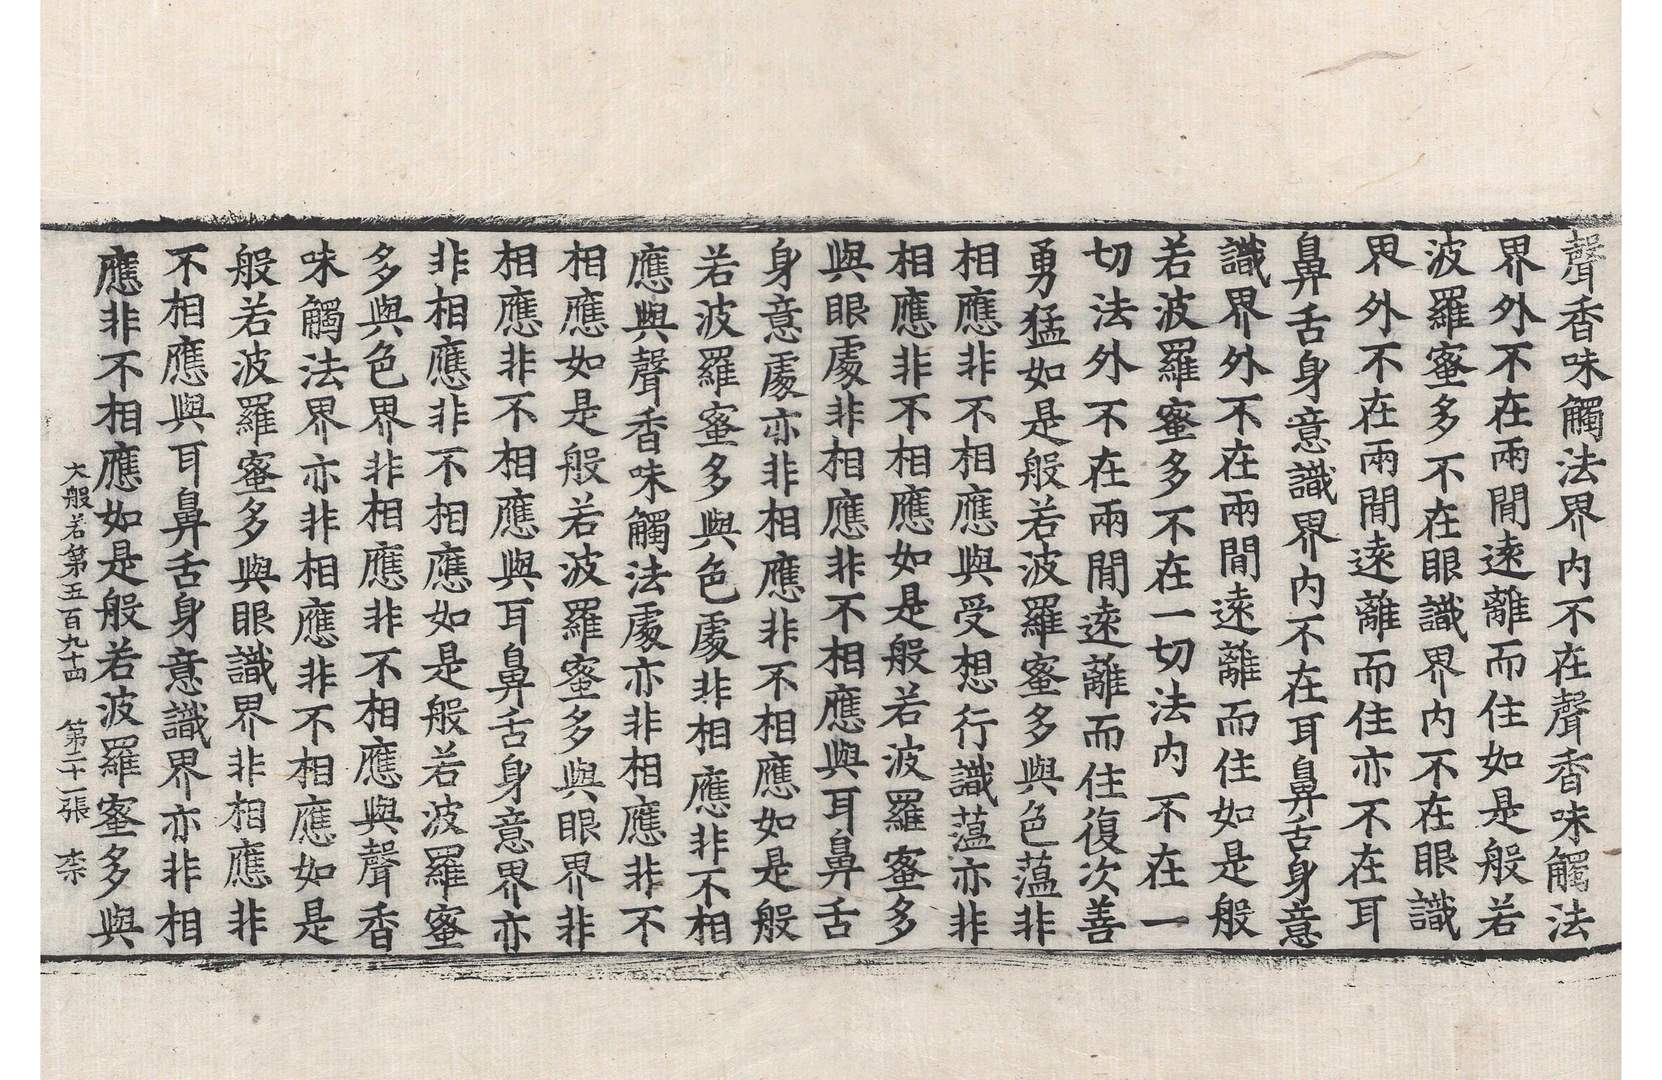 聲香味觸法界内不在聲香味觸法
界外不在兩閒遠離而住如是般若
波羅蜜多不在眼識界内不在眼識
界外不在兩閒遠離而住亦不在耳
鼻舌身意識界内不在耳鼻舌身意
識界外不在兩閒遠離而住如是般
若波羅蜜多不在一切法内不在一
切法外不在兩閒遠離而住復次善
勇猛如是般若波羅蜜多與色蘊非
相應非不相應與受想行識蘊亦非
相應非不相應如是般若波羅蜜多
與眼處非相應非不相應與耳鼻舌
身意處亦非相應非不相應如是般
若波羅蜜多與色處非相應非不相
應與聲香味觸法處亦非相應非不
相應如是般若波羅蜜多與眼界非
相應非不相應與耳鼻舌身意界亦
非相應非不相應如是般若波羅蜜
多與色界非相應非不相應與聲香
味觸法界亦非相應非不相應如是
般若波羅蜜多與眼識界非相應非
不相應與耳鼻舌身意識界亦非相
應非不相應如是般若波羅蜜多與
大般若第五百九十四 第二十一張 柰